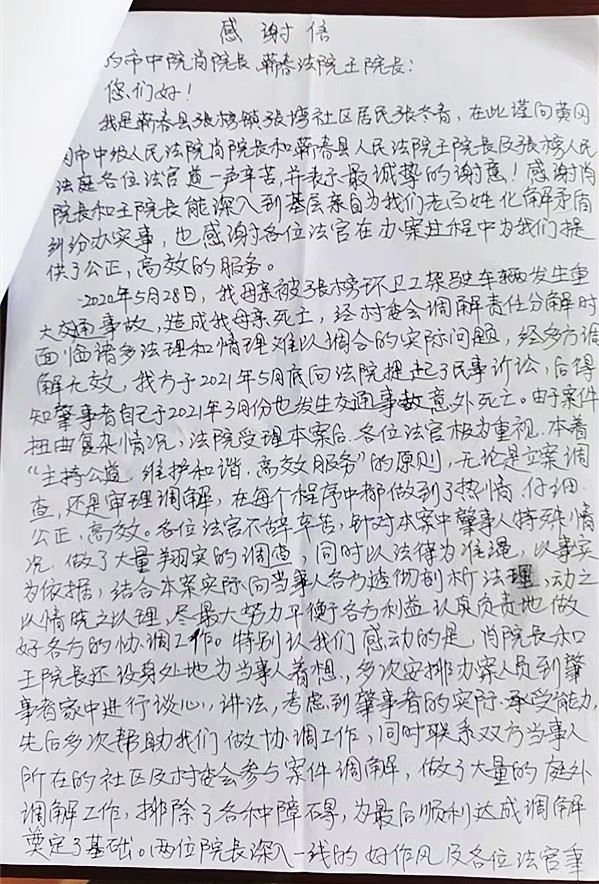 感谢信
的市中院肖院长、蕲春法院王院长：
您们好！
我是蕲春县张榜镇张塝社区居民张冬香，在此谨向黄冈
市中级人民法院肖院长和蕲春县人民法院王院长及张榜人民
法庭各位法官道一声辛苦，并表示最诚挚的谢意！感谢肖
院长和王院长能深入到基层亲自为我们老百姓化解矛盾
纠纷办实事，也感谢各位法官在办案过程中为我们提
供了公正，高效的服务。
2020年5月28日，我母亲被张榜环卫工驾驶车辆发生重
大交通事故，造成我母亲死亡，经村委会调解责任分解时
面临诸多法理和情理难以调合的实际问题，经多方调
解无效，我方于2021年5月底向法院提起了民事诉讼，后得
知肇事者自己于2021年3月份也发生交通事故意外死亡。由于案件
扭曲复杂情况，法院受理本案后，各位法官极为重视，本着
“主持公道，维护和谐，高效服务”的原则，无论是立案调
查，还是审理调解，在每个程序中都做到了热情，仔细，
公正，高效。各位法官不辞辛苦，针对本案中肇事人特殊情
况，做了大量翔实的调查，同时以法律为准绳，以事实
为依据，结合本案实际向当事人各方透彻剖析法理，动之
以情晓之以理，尽最大努力平衡了各方利益认真负责地做
好各方的协调工作。特别让我们感动的是，肖院长和
王院长还设身处地为当事人着想，多次安排办案人员到肇
事者家中进行谈心，讲法，考虑到肇事者的实际承受能力，
先后多次帮助我们做协调工作，同时联系双方当事人
所在的社区及村委会参与案件调解，做了大量的庭外
调解工作，排除了各种障碍，为最后顺利达成调解
奠定了基础。两位院长深入一线的好作风及各位法官秉